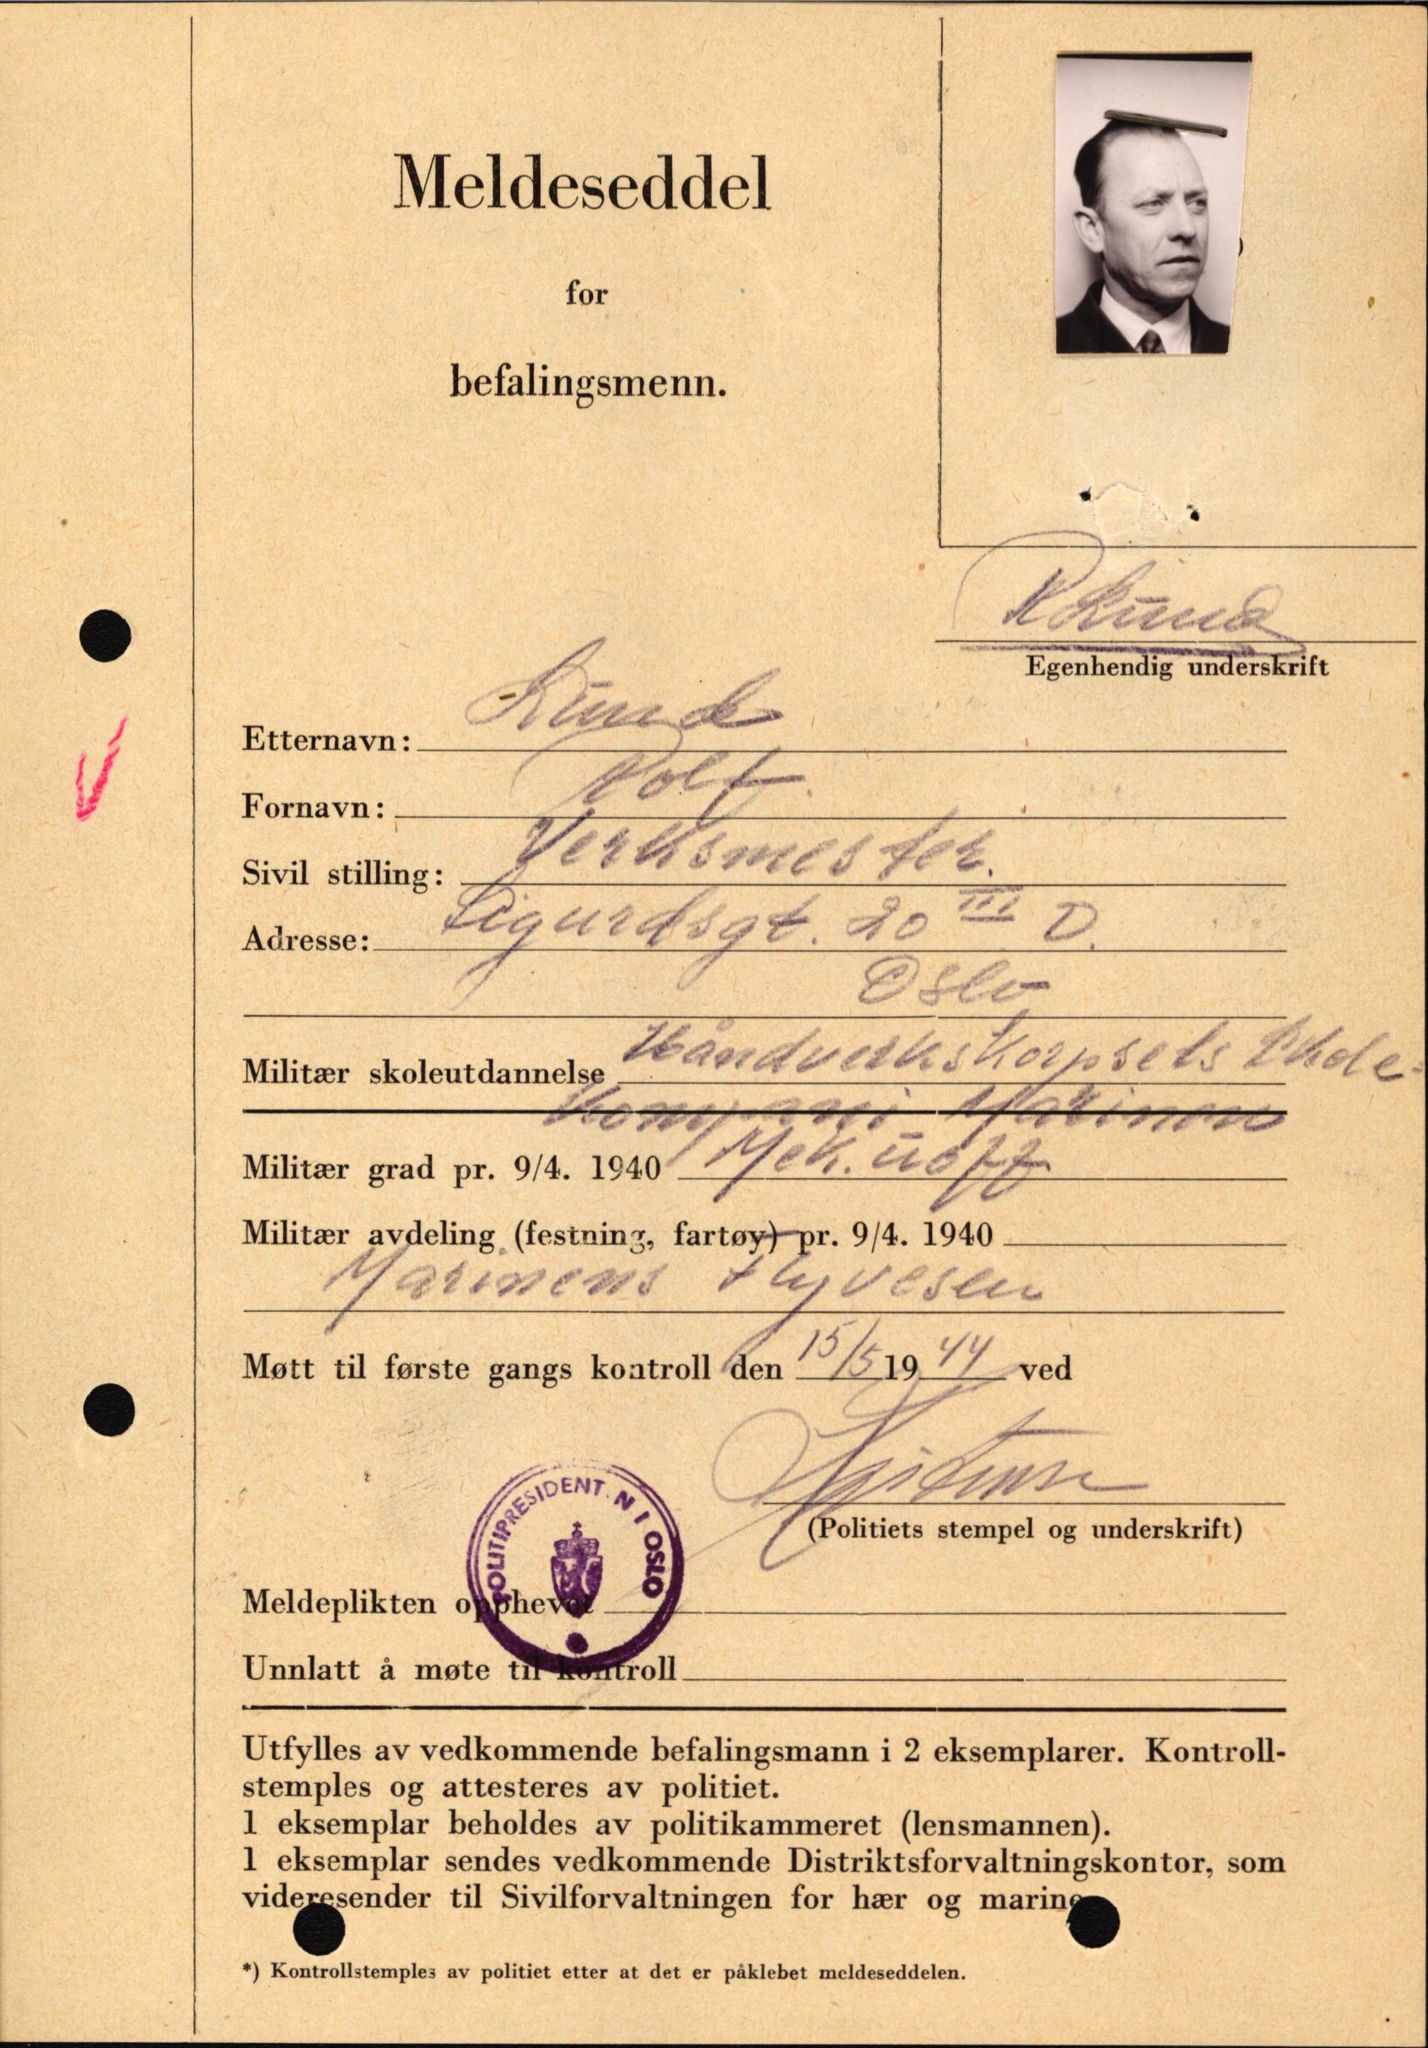 Meldeseddel
for
befalingsmenn.
R Lund
Egenhendig underskrift
Etternavn: Lund
Fornavn: Rolf.
Sivil stilling: Verksmester.
Adresse: Sigurdsgt. 20 III D.
Oslo
Militær skoleutdannelse Håndverkskorpsets Skole-
Kompani Marinen
Militær grad pr. 9/4. 1940 Mek. uoff
Militær avdeling (festning, fartøy) pr. 9/4. 1940
Marinens Flyvesen
Møtt til første gangs kontroll den 15/5 1944 ved
(Politiets stempel og underskrift)
POLITIPRESIDENT.N I OSLO
Meldeplikten opphevet
Unnlatt å møte til kontroll
Utfylles av vedkommende befalingsmann i 2 eksemplarer. Kontroll-
stemples og attesteres av politiet.
1 eksemplar beholdes av politikammeret (lensmannen).
1 eksemplar sendes vedkommende Distriktsforvaltningskontor, som
videresender til Sivilforvaltningen for hær og marine
*) Kontrollstemples av politiet etter at det er påklebet meldeseddelen.